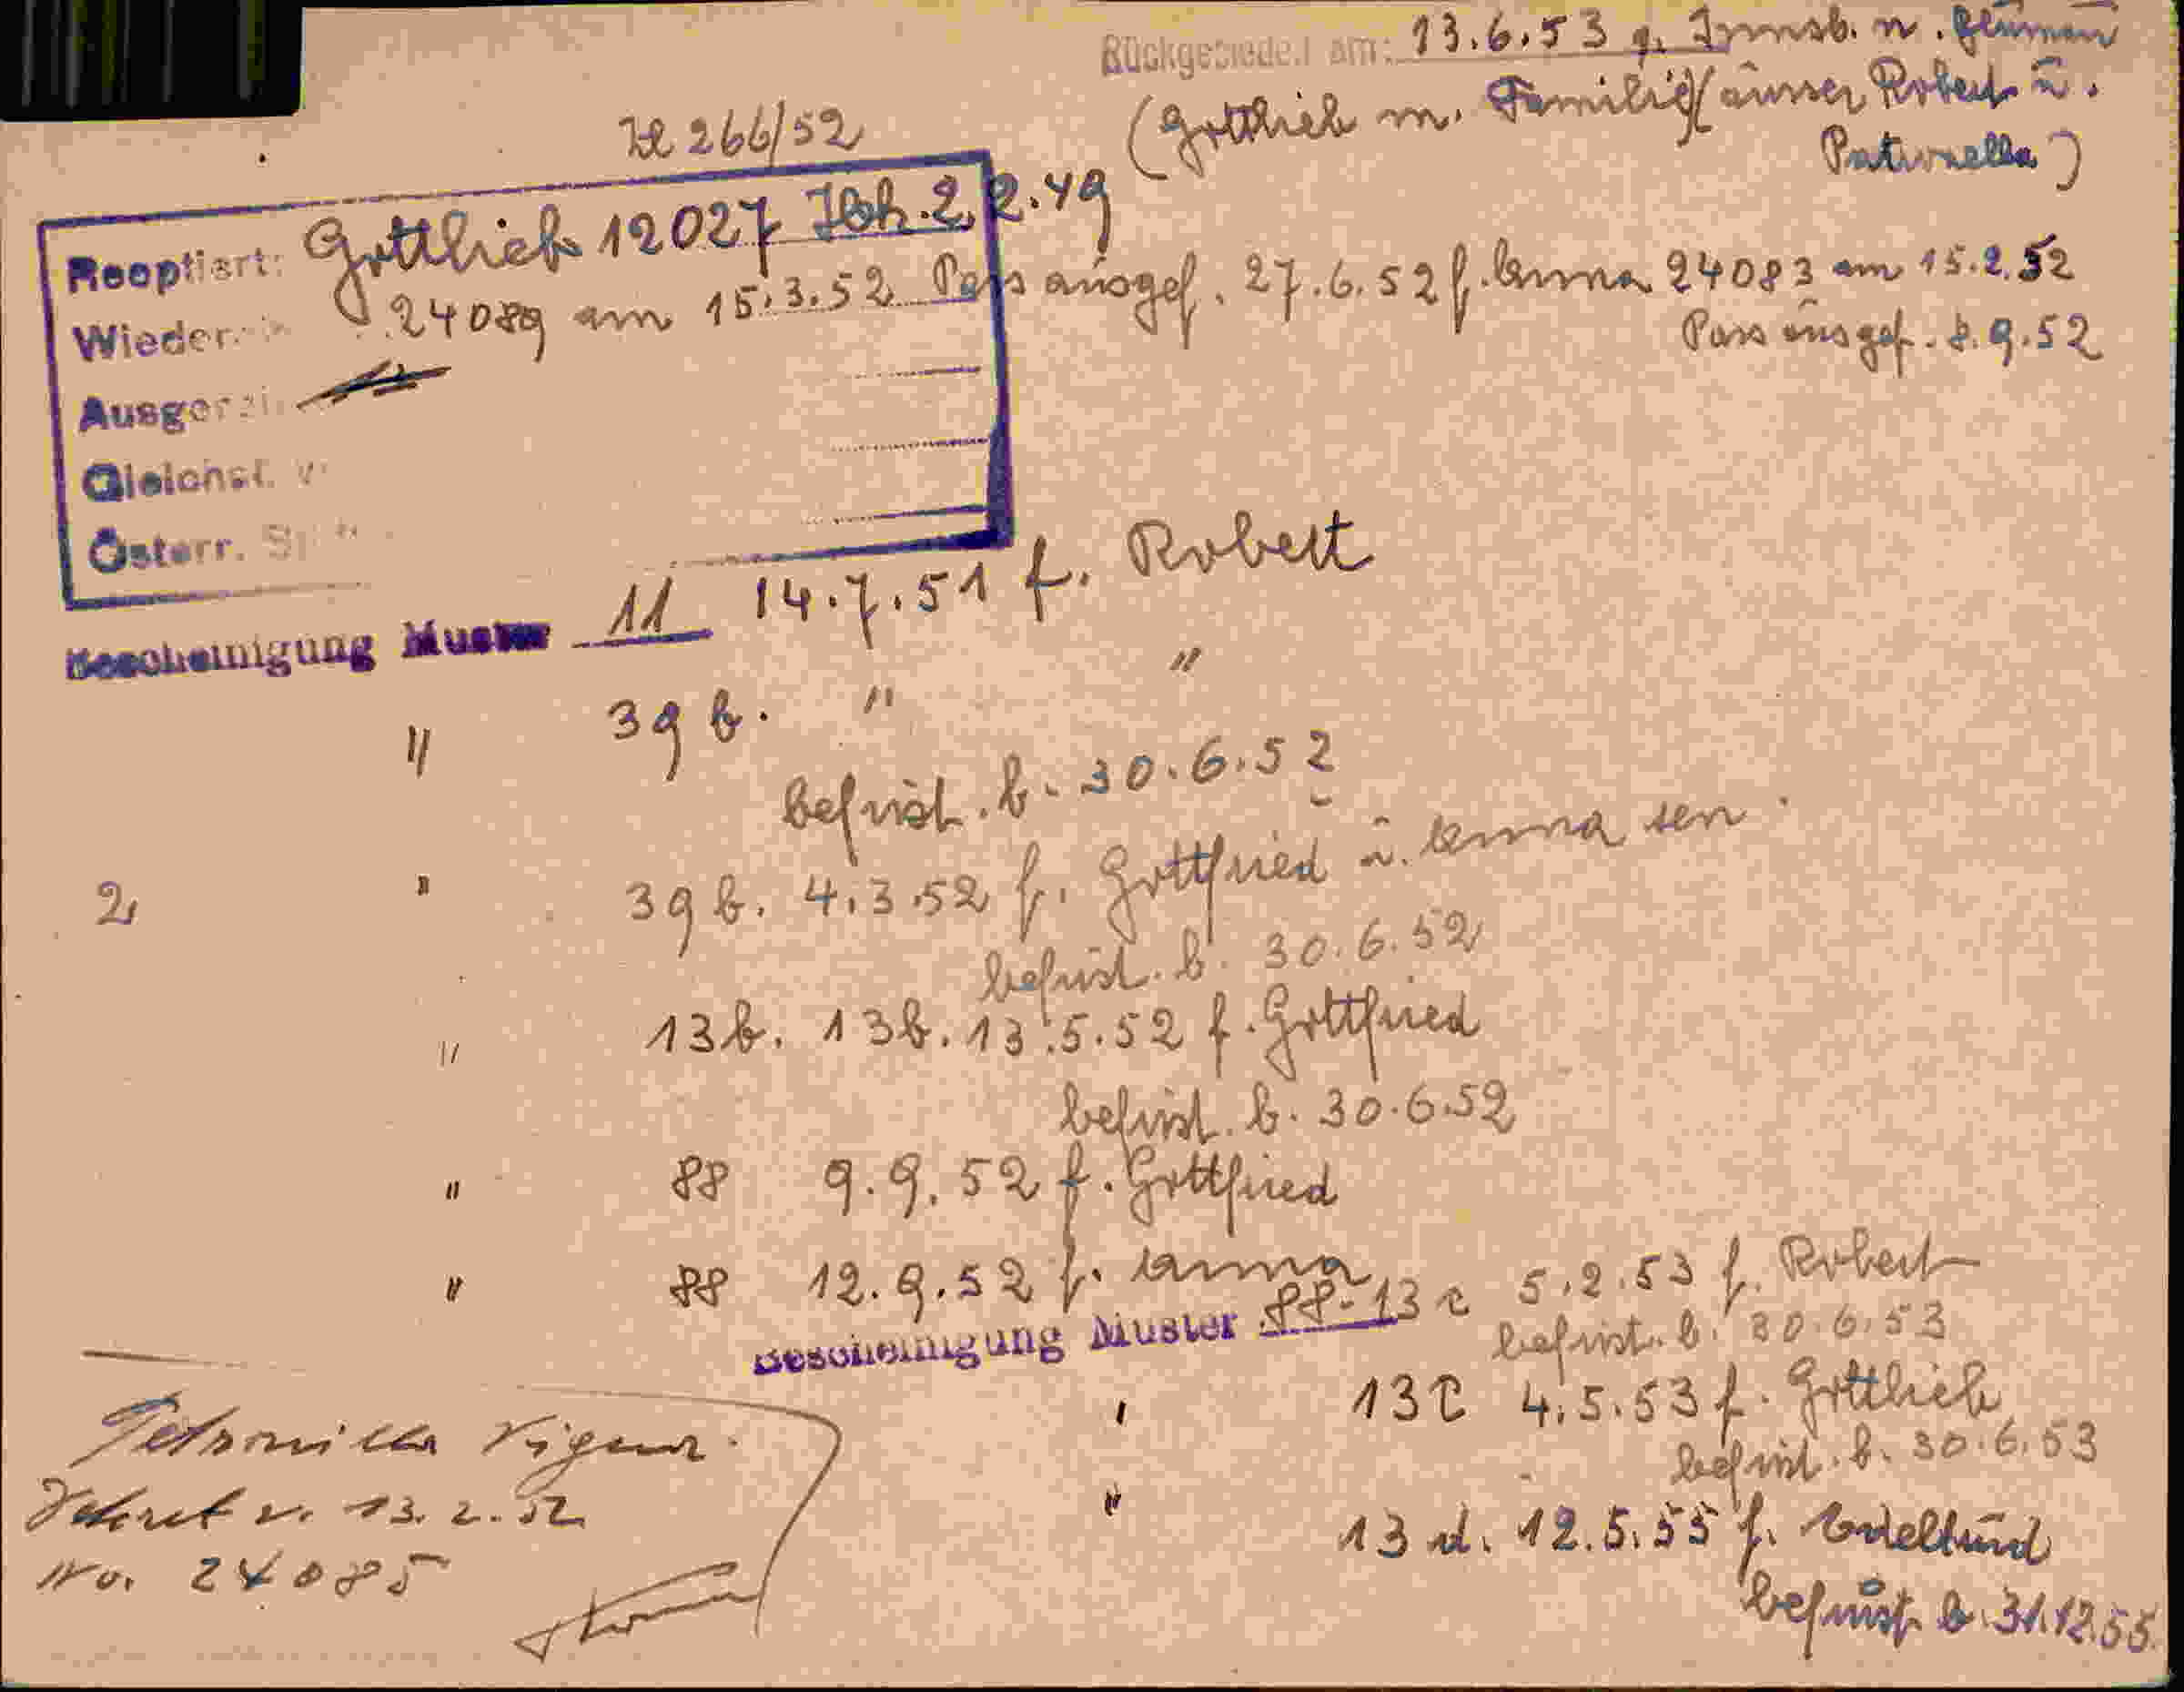 Rückgesiedelt am: 13.6.53 g. Innsb. n.
(Gottlieb m. Familie) (ausser Robert u.
Petronella)
Zl 266/52
Reoptiert: Gottlieb 12027 2.2.49
24089 am 15.3.52 Pass ausgef. 27.6.52 f. Anna 24083 am 15.2.52
Pass ausgef. 8.9.52
Wieder
Ausger
Gleichst. v
Österr. St
Bescheinigung Muster 11 14.7.51 f. Robert
" 39 b. " "
befrist. b. 30.6.52
2 " 39 b. 4.3.52 f. Gottfried u. Anna sen
befrist. b. 30.6.52
" 13b. 13b. 13.5.52 f. Gottfried
befrist. b. 30.6.52
" 88 9.9.52 f. Gottfried
" 88 12.9.52 f. Anna
Bescheinigung Muster 88-13c 5.2.53 f. Robert
befrist. b. 30.6.53
" 13c 4.5.53 f. Gottlieb
befrist. b. 30.6.53
" 13 d. 12.5.55 f. Edeltrud
befrist b. 31.12.55.
Petronilla
Dekret v. 13.2.52
No. 24085